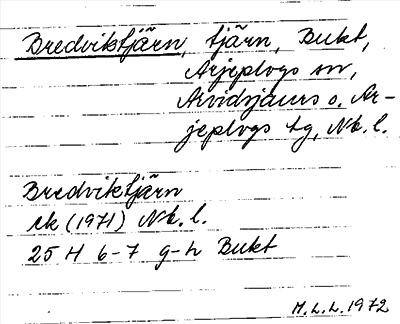 Bredviktjärn, tjärn, Bukt,
Arjeplogs sn,
Arvidsjaurs o. Ar-
jeplogs tg, Nb. l.
Bredviktjärn
ek (1971) Nb. l.
25 H 6-7 g-h Bukt
M. L. L. 1972